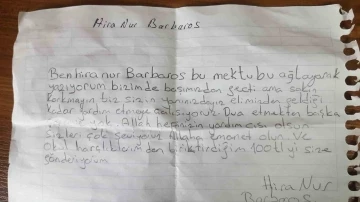 Hira Nur Barbaros
Ben hira nur Barbaros bu mektubu ağlayarak
yazıyorum bizimde başımızdan geçti ama sakın
korkmayın biz sizin yanınızdayız elimizden geldiği
kadar yardım etmeye çalışıyoruz Dua etmekten başka
Allah hepinizin yardımcısı olsun
Sizleri çok seviyoruz Allaha emanet olun ve
Okul harçlıklarımdan biriktirdiğim 100 tl yi size
gönderiyorum
Hira Nur
Barbaros